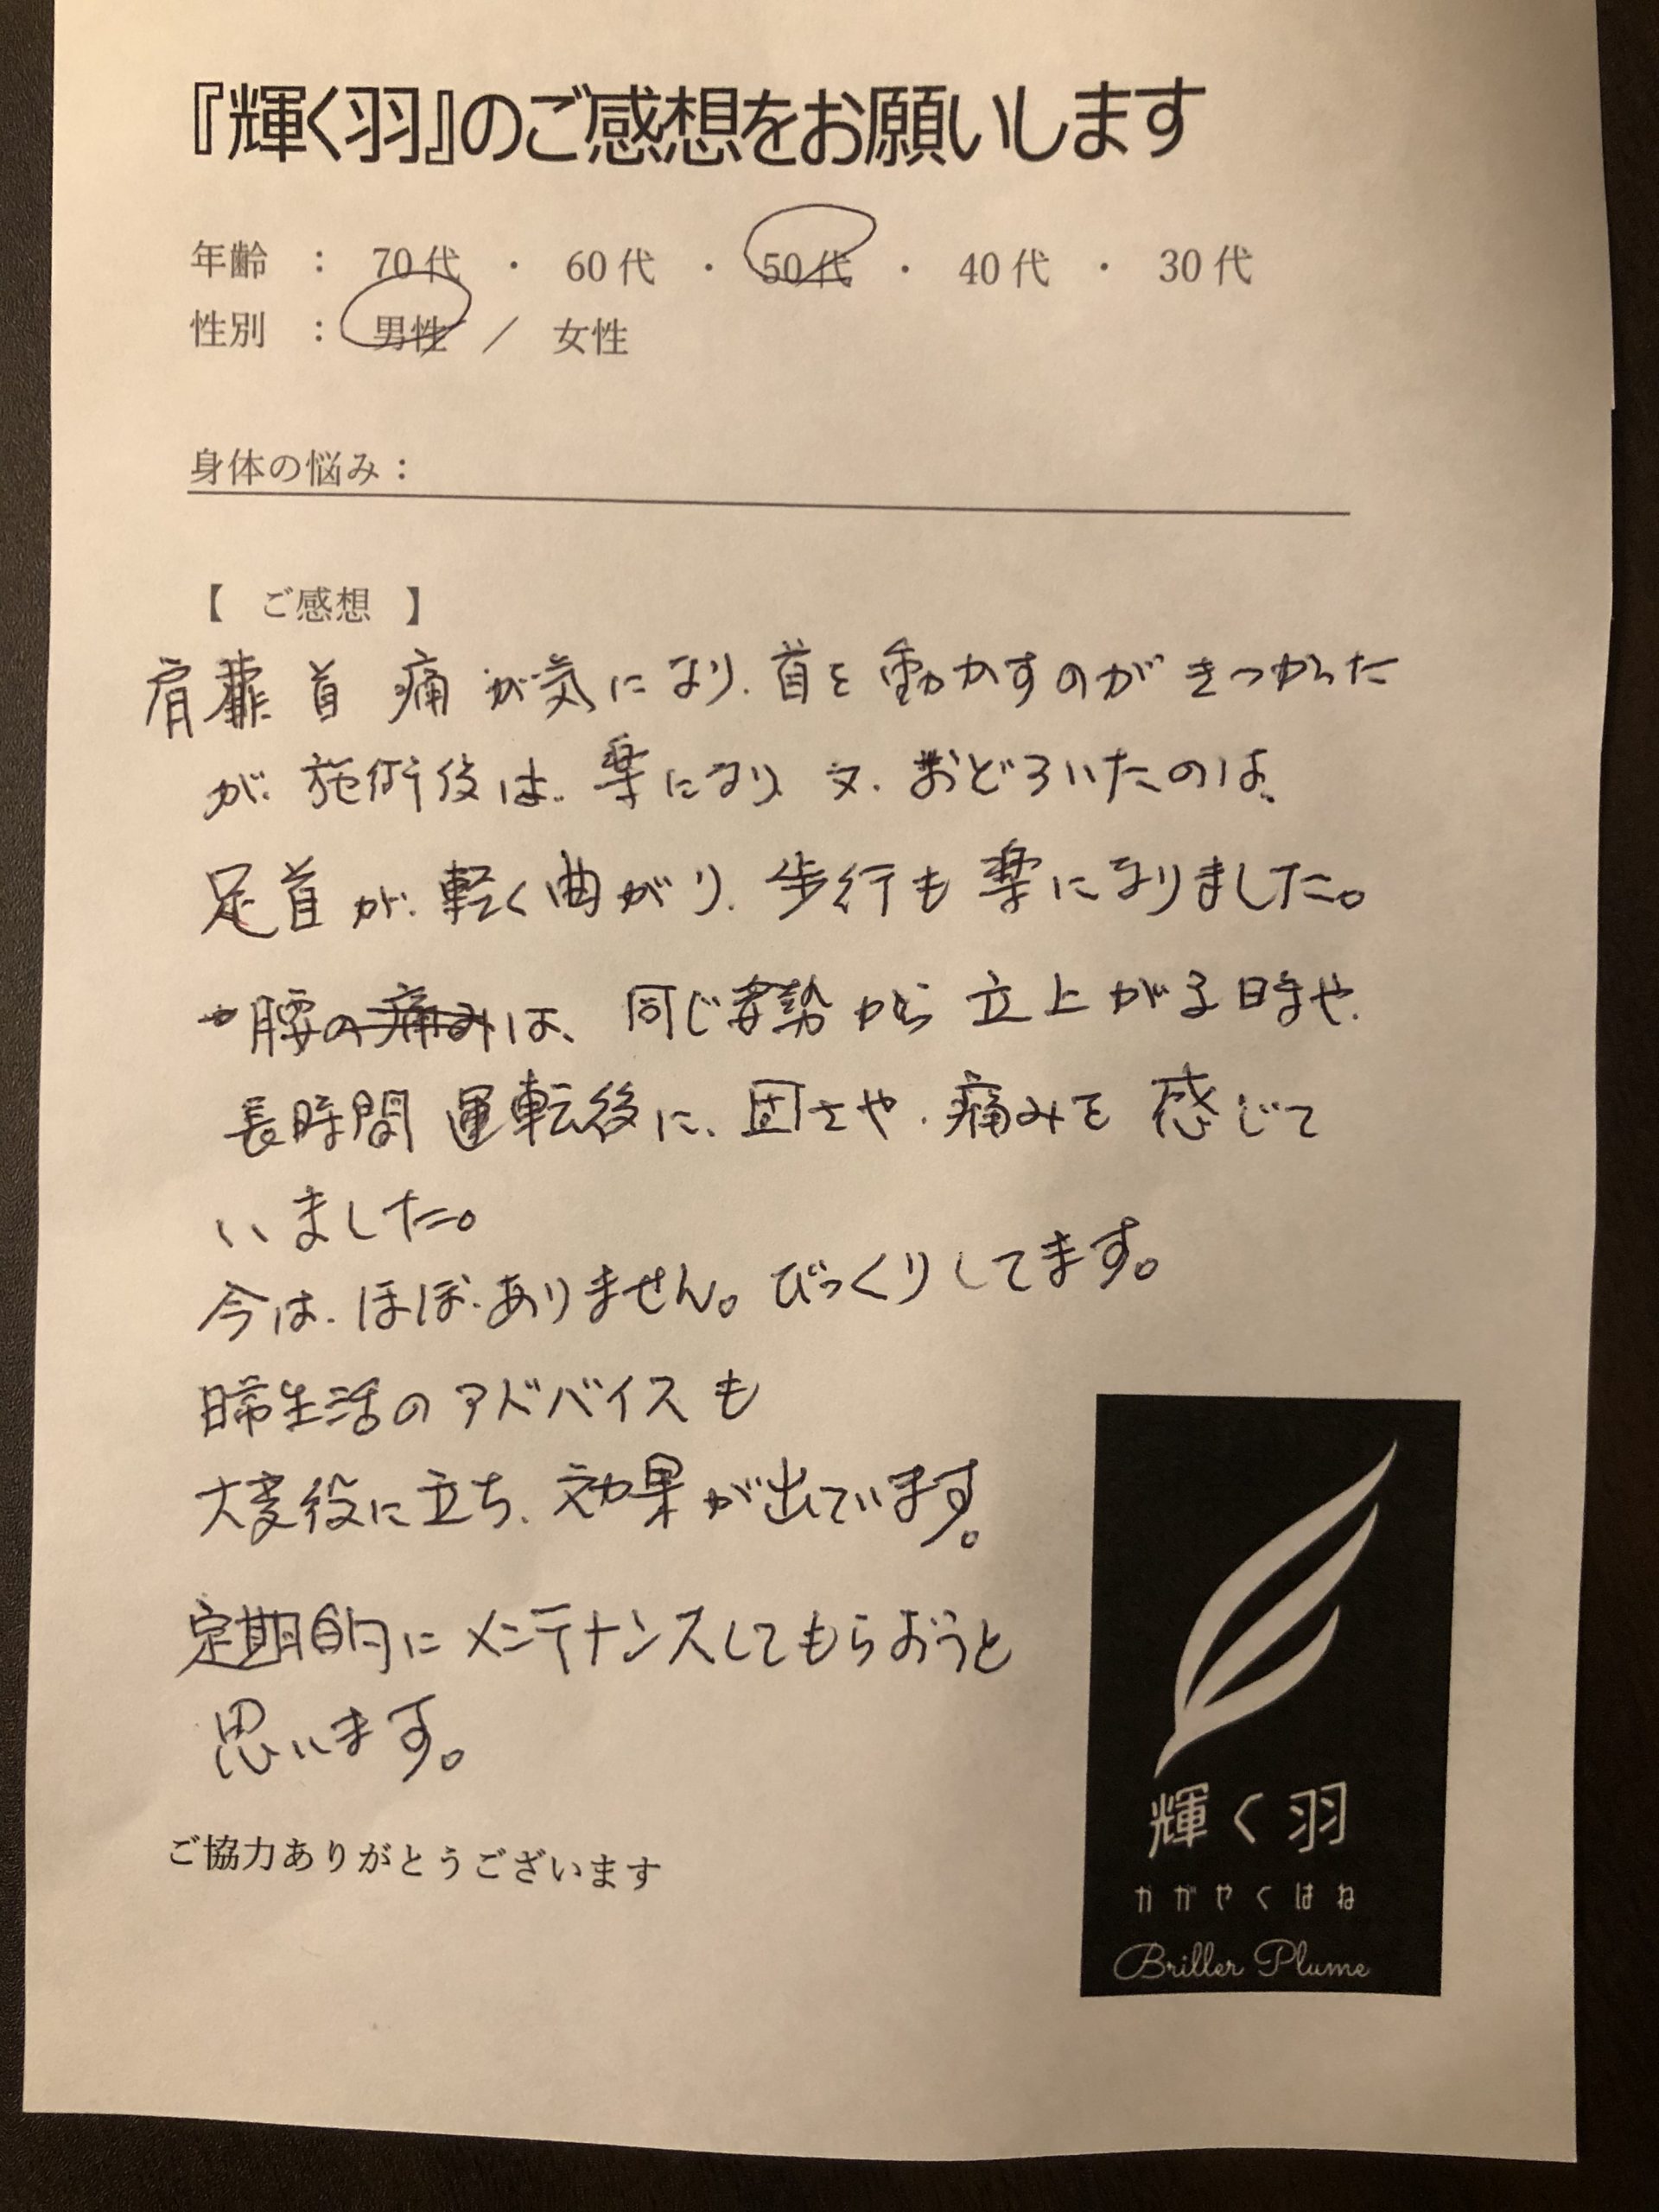 『輝く羽』のご感想をお願いします
年齢 : 70代 ・ 60代 ・ 50代 ・ 40代 ・ 30代
性別 : 男性 / 女性
身体の悩み:
【 ご感想 】
肩 首 痛が気になり、首を動かすのがきつかった
が、施術後は、楽になり、又、おどろいたのは、
足首が、軽く曲がり、歩行も楽になりました。
腰の痛みは、同じ姿勢から立上がる時や、
長時間運転後に、固さや、痛みを感じて
いました。
今は、ほぼ、ありません。びっくりしてます。
日常生活のアドバイスも
大変役に立ち、効果が出ています。
定期的にメンテナンスしてもらおうと
思います。
ご協力ありがとうございます
輝く羽
かがやくはね
Briller Plume